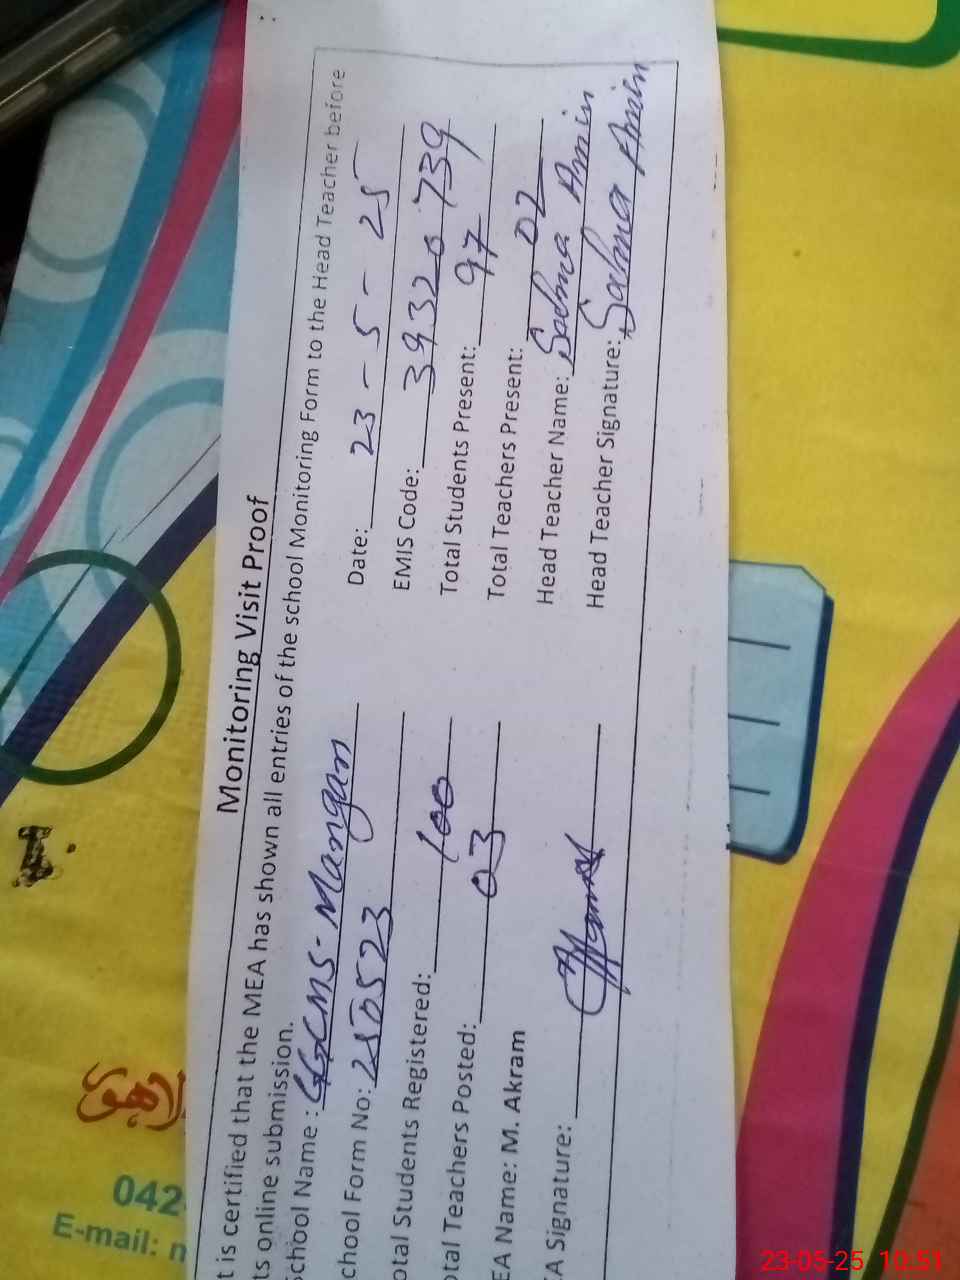 Monitoring Visit Proof
t is certified that the MEA has shown all entries of the school Monitoring Form to the Head Teacher before
ts online submission.
School Name : GGCMS- Mangan
Date: 23-5-25
chool Form No: 250523
EMIS Code: 39320739
otal Students Registered: 100
Total Students Present: 97
otal Teachers Posted: 03
Total Teachers Present: 02
EA Name: M. Akram
Head Teacher Name: Salma Amin
A Signature:
Head Teacher Signature: Salma Amin
042-
E-mail: n
23-05-25 10:51